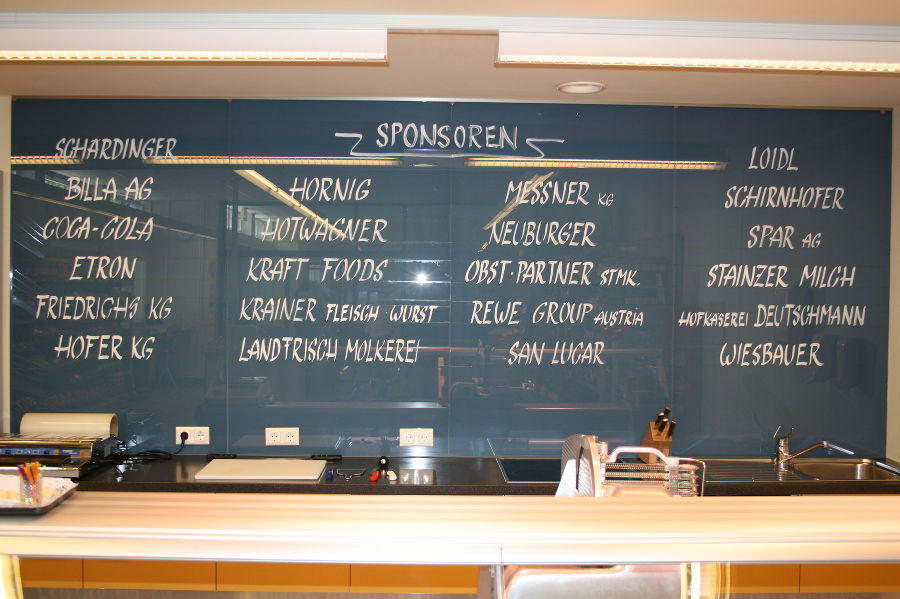 SPONSOREN
SCHARDINGER
BILLA AG
COCA-COLA
ETRON
FRIEDRICHS KG
HOFER KG
HORNIG
HOTWAGNER
KRAFT FOODS
KRAINER FLEISCH WURST
LANDFRISCH MOLKEREI
MESSNER KG
NEUBURGER
OBST·PARTNER STMK.
REWE GROUP AUSTRIA
SAN LUCAR
LOIDL
SCHIRNHOFER
SPAR AG
STAINZER MILCH
HOFKASEREI DEUTSCHMANN
WIESBAUER